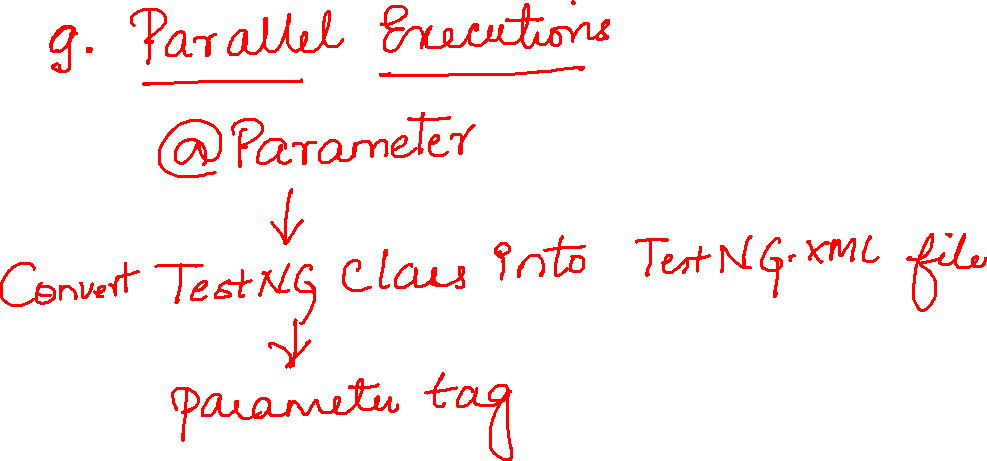 g. Parallel Executions
@Parameter
↓
Convert TestNG Class into TestNG.XML file
↓
parameter tag